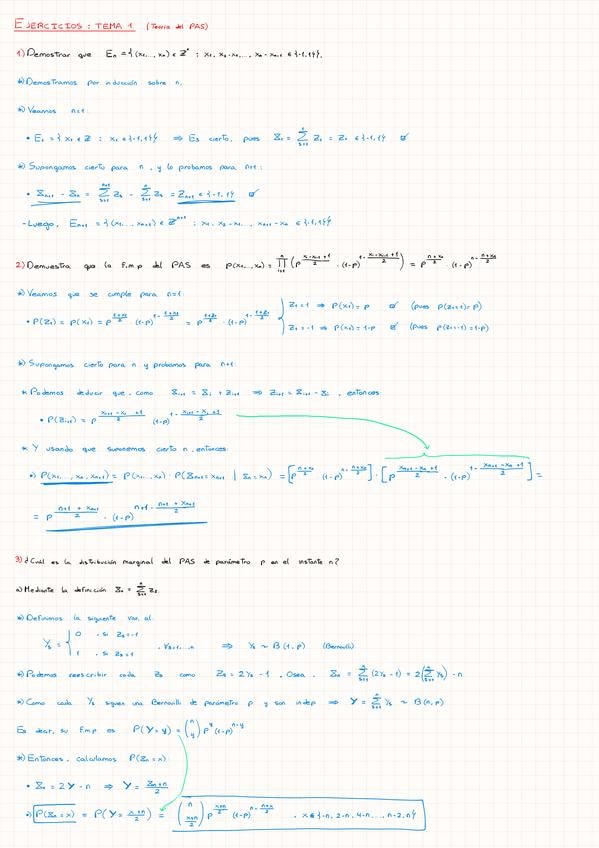 EJERCICIOS: TEMA 1 (Teoría del PAS)
1) Demostrar que Eₙ = {(x₁,..., xₙ) ∈ ℤⁿ : x₁, x₂-x₁,..., xₙ - xₙ₋₁ ∈ {-1,1}}.
*) Demostramos por inducción sobre n.
*) Veamos n=1:
• E₁ = {x₁ ∈ ℤ : x₁ ∈ {-1,1}} ⇒ Es cierto, pues X₁ = Σ_{s=1}^{1} Z_s = Z₁ ∈ {-1,1} ☑
*) Supongamos cierto para n, y lo probamos para n+1:
• Xₙ₊₁ - Xₙ = Σ_{s=1}^{n+1} Z_s - Σ_{s=1}^{n} Z_s = Zₙ₊₁ ∈ {-1,1} ☑
- Luego, Eₙ₊₁ = {(x₁,..., xₙ₊₁) ∈ ℤⁿ⁺¹ : x₁, x₂-x₁,..., xₙ₊₁ - xₙ ∈ {-1,1}}
2) Demuestra que la f.m.p del PAS es P(x₁,...,xₙ) = ∏_{i=1}^{n} (p^{(xᵢ-xᵢ₋₁+1)/2} · (1-p)^{1-(xᵢ-xᵢ₋₁+1)/2}) = p^{(n+xₙ)/2} · (1-p)^{n-(n+xₙ)/2}
*) Veamos que se cumple para n=1:
• P(Z₁) = P(x₁) = p^{(1+x₁)/2} · (1-p)^{1-(1+x₁)/2} = p^{(1+Z₁)/2} · (1-p)^{1-(1+Z₁)/2} { Z₁=1 ⇒ P(x₁)=p ☑ (pues P(Z₁=1)=p)
Z₁=-1 ⇒ P(x₁)=1-p ☑ (pues P(Z₁=-1)=1-p)
*) Supongamos cierto para n y probamos para n+1:
* Podemos deducir que, como Xᵢ₊₁ = Xᵢ + Zᵢ₊₁ ⇒ Zᵢ₊₁ = Xᵢ₊₁ - Xᵢ, entonces:
• P(Zᵢ₊₁) = p^{(xᵢ₊₁-xᵢ+1)/2} (1-p)^{1-(xᵢ₊₁-xᵢ+1)/2}
* Y usando que suponemos cierto n, entonces:
•) P(x₁,..., xₙ, xₙ₊₁) = P(x₁,...,xₙ) · P(Xₙ₊₁=xₙ₊₁ | Xₙ=xₙ) = [p^{(n+xₙ)/2} (1-p)^{n-(n+xₙ)/2}] · [p^{(xₙ₊₁-xₙ+1)/2} · (1-p)^{1-(xₙ₊₁-xₙ+1)/2}] =
= p^{(n+1+xₙ₊₁)/2} · (1-p)^{n+1-(n+1+xₙ₊₁)/2}
3) ¿Cuál es la distribución marginal del PAS de parámetro p en el instante n?
a) Mediante la definición Xₙ = Σ_{s=1}^{n} Z_s
*) Definimos la siguiente var. al:
Y_s = { 0 , si Z_s=-1
1 , si Z_s=1 , ∀s=1,...,n ⇒ Y_s ~ B(1,p) (Bernoulli)
*) Podemos reescribir cada Z_s como Z_s = 2Y_s - 1 . Osea, Xₙ = Σ_{s=1}^{n} (2Y_s - 1) = 2(Σ_{s=1}^{n} Y_s) - n
*) Como cada Y_s sigue una Bernoulli de parámetro p y son indep ⇒ Y = Σ_{s=1}^{n} Y_s ~ B(n,p)
Es decir, su f.m.p es P(Y=y) = (n y) p^y (1-p)^{n-y}
*) Entonces, calculamos P(Xₙ=x):
• Xₙ = 2Y - n ⇒ Y = (Xₙ+n)/2
•) P(Xₙ=x) = P(Y = (x+n)/2) = (n (x+n)/2) p^{(x+n)/2} (1-p)^{n-(n+x)/2} , x ∈ {-n, 2-n, 4-n,..., n-2, n}